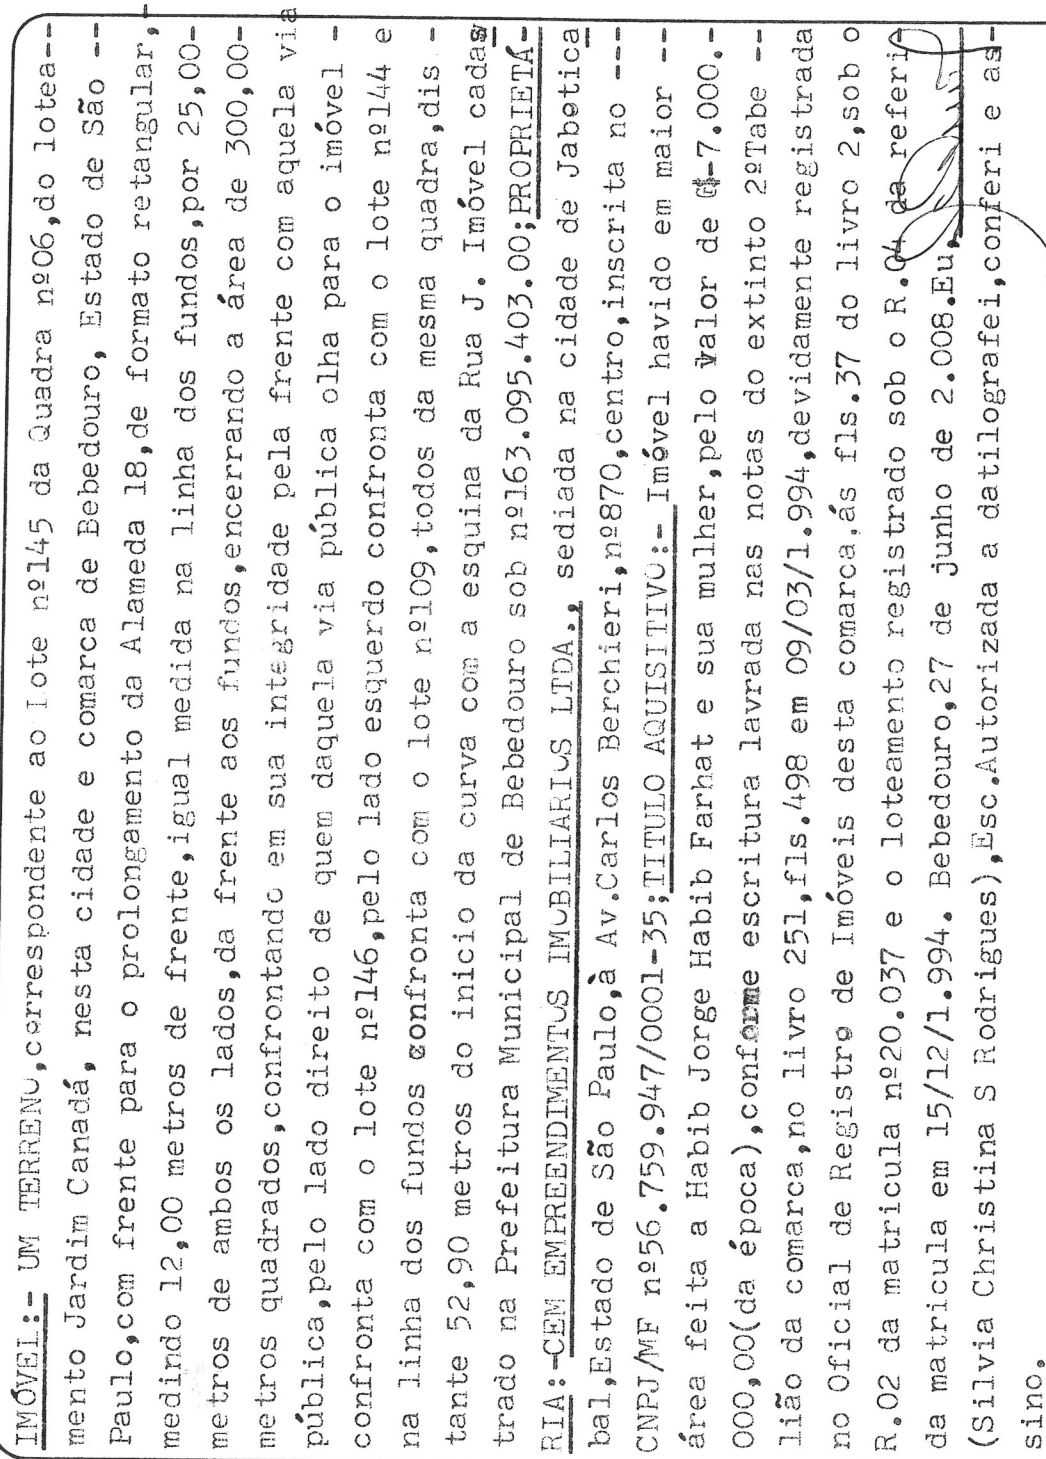 IMÓVEL:- UM TERRENO,correspondente ao Lote nº145 da Quadra nº06,do lotea--
mento Jardim Canadá, nesta cidade e comarca de Bebedouro, Estado de São --
Paulo,com frente para o prolongamento da Alameda 18,de formato retangular,-
medindo 12,00 metros de frente,igual medida na linha dos fundos,por 25,00-
metros de ambos os lados,da frente aos fundos,encerrando a área de 300,00-
metros quadrados,confrontando em sua integridade pela frente com aquela via
pública,pelo lado direito de quem daquela via pública olha para o imóvel -
confronta com o lote nº146,pelo lado esquerdo confronta com o lote nº144 e
na linha dos fundos confronta com o lote nº109,todos da mesma quadra,dis -
tante 52,90 metros do inicio da curva com a esquina da Rua J. Imóvel cadas
trado na Prefeitura Municipal de Bebedouro sob nº163.095.403.00;PROPRIETÁ-
RIA:-CEM EMPREENDIMENTOS IMOBILIARIOS LTDA., sediada na cidade de Jabotica
bal,Estado de São Paulo,à Av.Carlos Berchieri,nº870,centro,inscrita no ---
CNPJ/MF nº56.759.947/0001-35;TITULO AQUISITIVO:- Imóvel havido em maior --
área feita a Habib Jorge Habib Farhat e sua mulher,pelo valor de -7.000.-
000,00(da época),conforme escritura lavrada nas notas do extinto 2ºTabe --
lião da comarca,no livro 251,fls.498 em 09/03/1.994,devidamente registrada
no Oficial de Registro de Imóveis desta comarca,ás fls.37 do livro 2,sob o
R.02 da matricula nº20.037 e o loteamento registrado sob o R.04 da referi-
da matricula em 15/12/1.994. Bebedouro,27 de junho de 2.008.Eu,
(Silvia Christina S Rodrigues),Esc.Autorizada a datilografei,conferi e as-
sino.